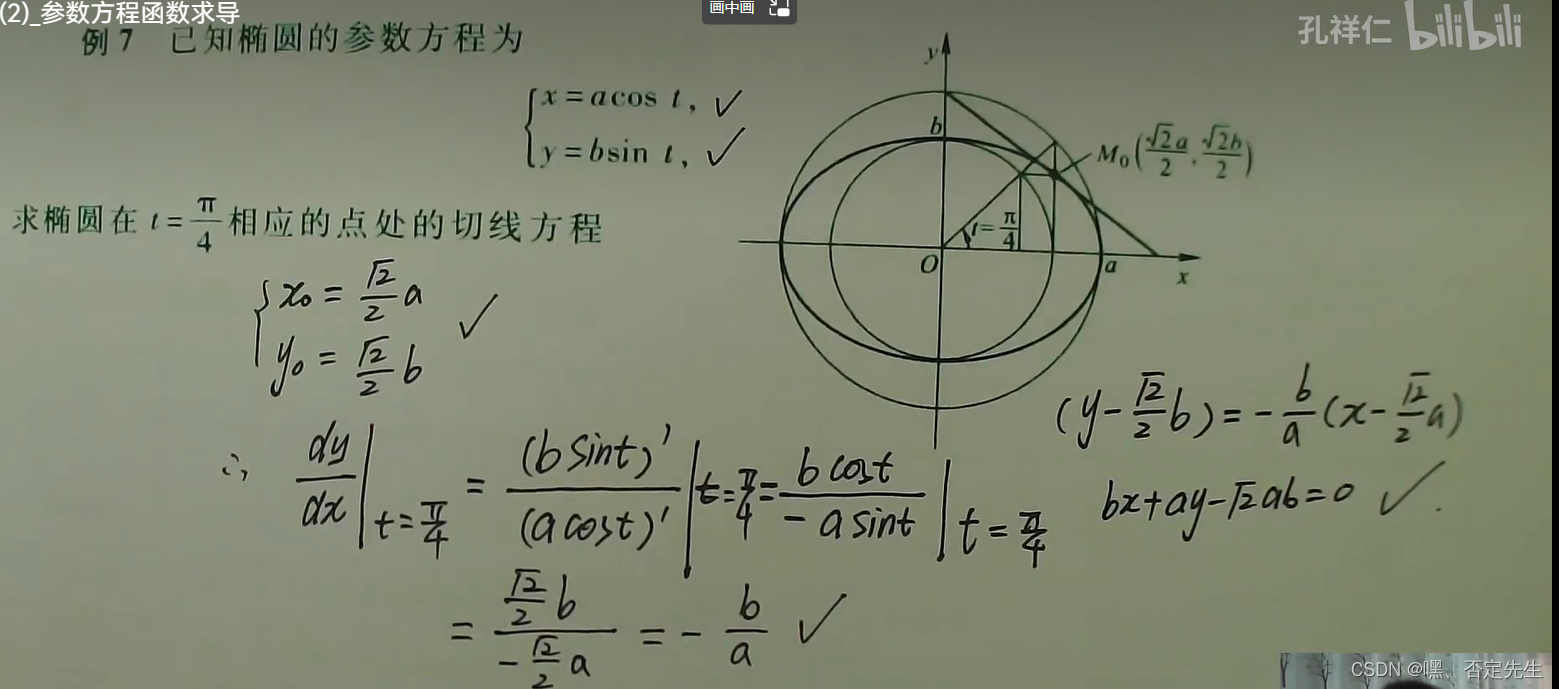 (2)_参数方程函数求导
画中画
孔祥仁 bilibili
例 7 已知椭圆的参数方程为
{ x = acos t, ✓
y = bsin t, ✓
求椭圆在 t = π/4 相应的点处的切线方程
y
b
M₀(√2a/2, √2b/2)
t=π/4
O
a
x
{ x₀ = √2/2 a
y₀ = √2/2 b ✓
∴ dy/dx |t=π/4 = (b sint)'/(a cost)' |t=π/4 = b cost/-a sint |t=π/4
= √2/2 b / -√2/2 a = - b/a ✓
(y-√2/2 b) = -b/a (x-√2/2 a)
bx+ay-√2ab=0 ✓.
CSDN @嘿、否定先生